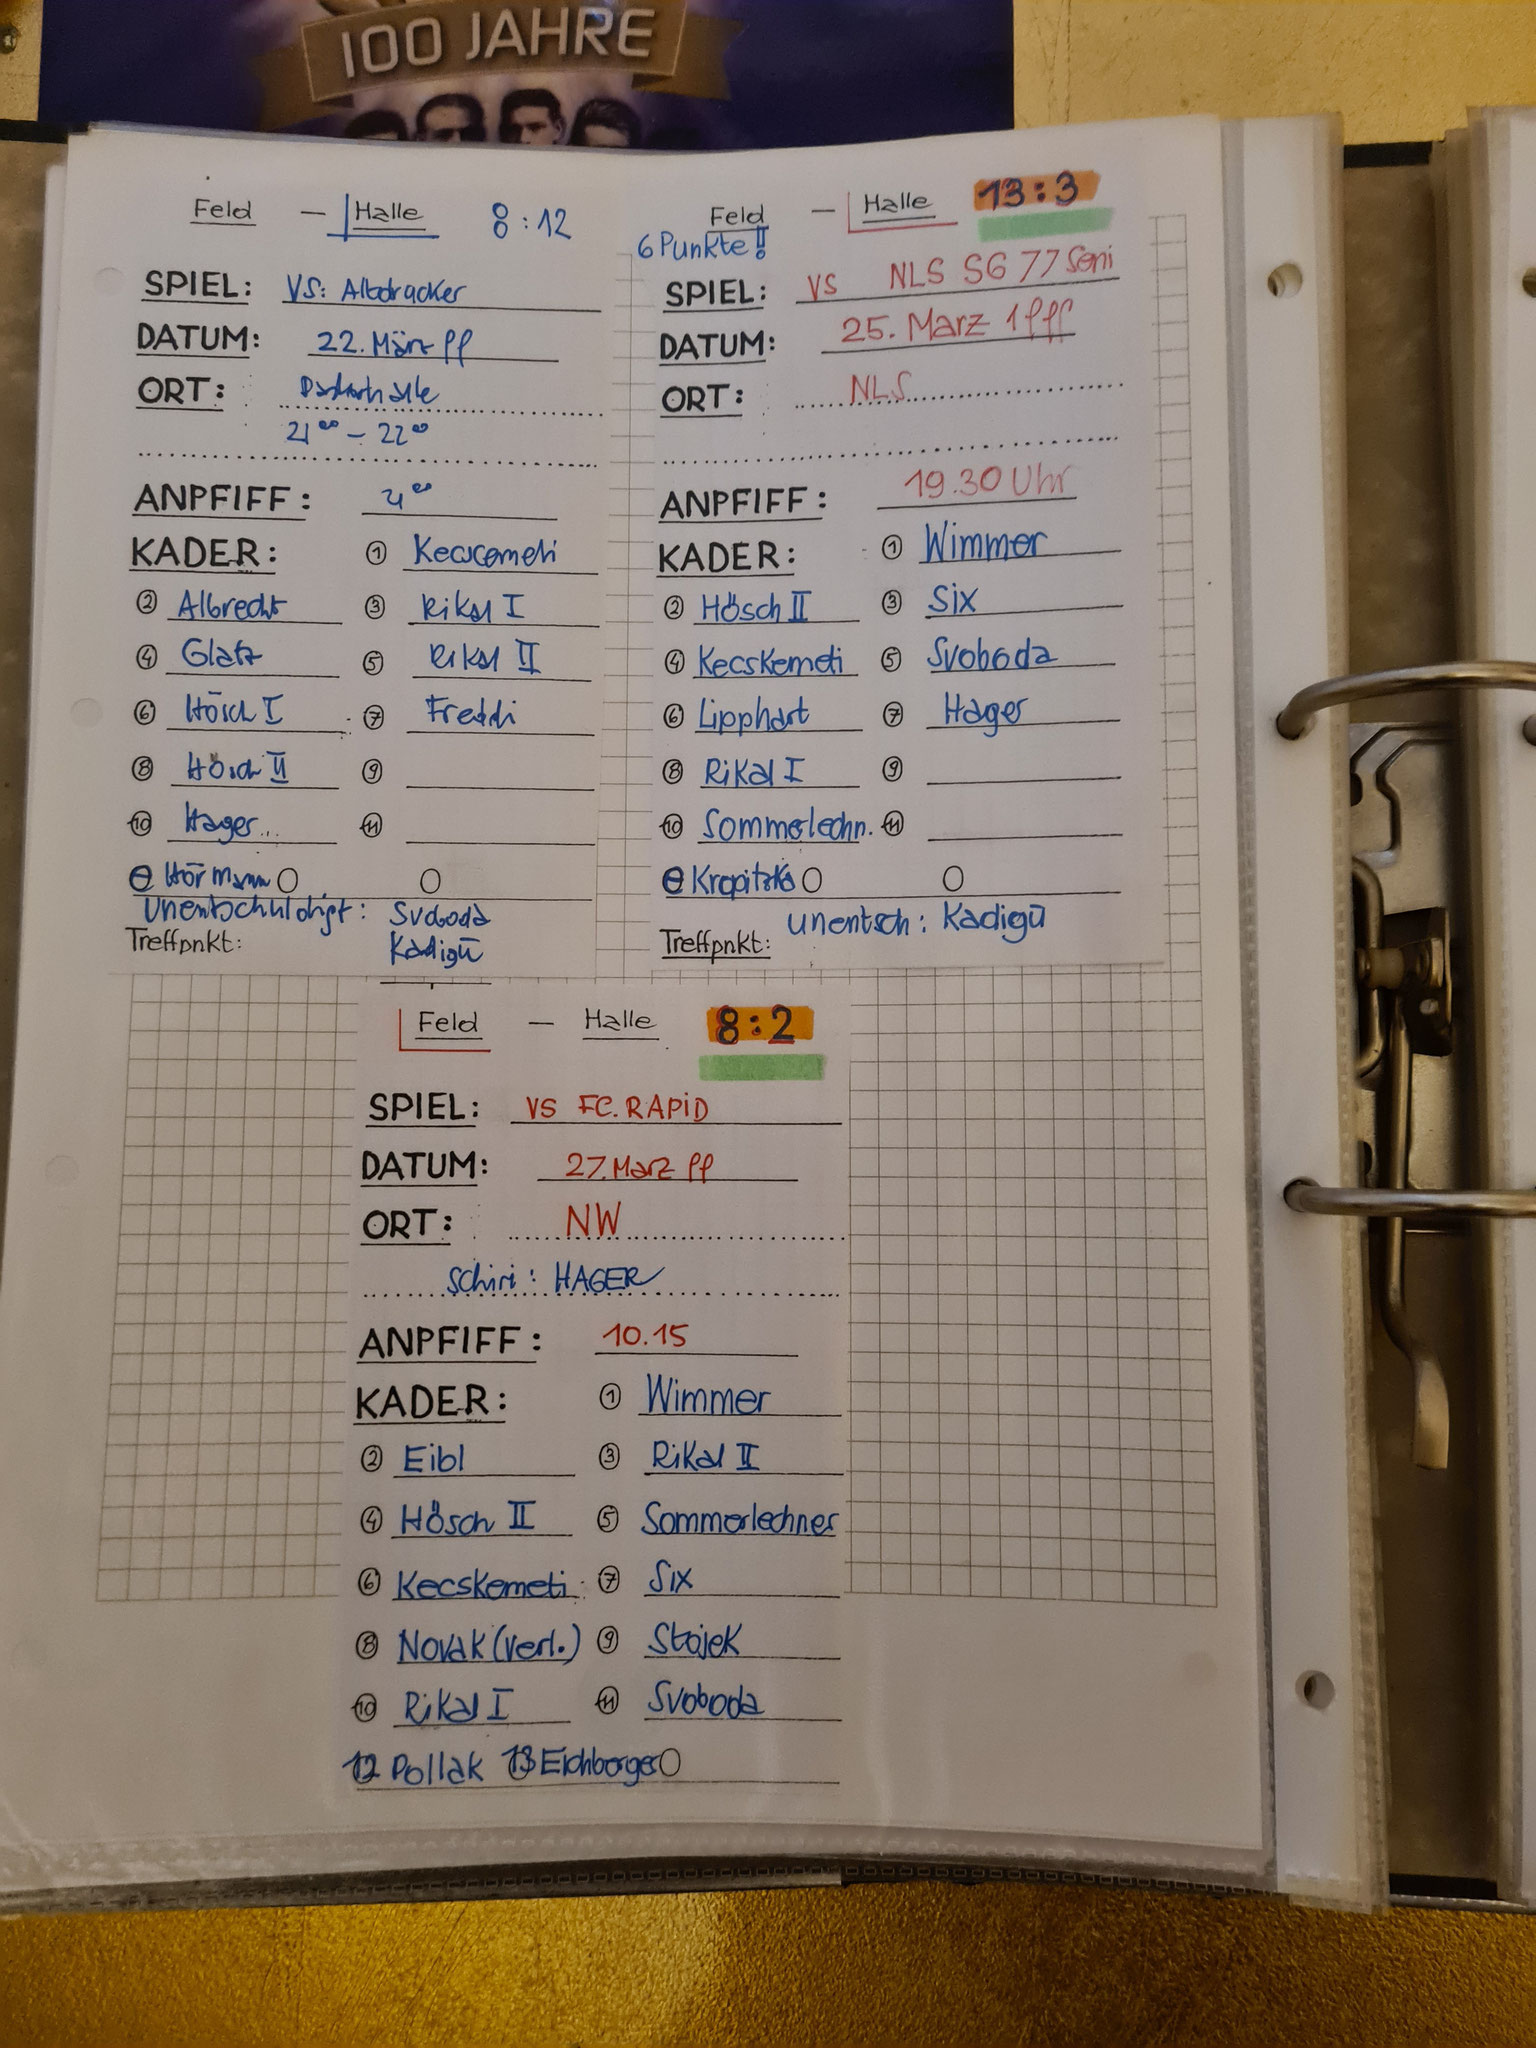 100 JAHRE
Feld — Halle 8:12
SPIEL: VS: Albdrucker
DATUM: 22. März 99
ORT:
21⁰⁰ – 22⁰⁰
ANPFIFF: 21⁰⁰
KADER: ① Kecscemeti
② Albrecht ③ Rikal I
④ Glatz ⑤ Rikal II
⑥ Hösch I ⑦ Freddi
⑧ Hösch II ⑨
⑩ Hager ⑪
Hörmann
Unentschuldigt: Svoboda
Treffpnkt: Kadigü
Feld — Halle 13:3
6 Punkte!!
SPIEL: VS NLS SG 77 Seni
DATUM: 25. März 1999
ORT: NLS
ANPFIFF: 19.30 Uhr
KADER: ① Wimmer
② Hösch II ③ Six
④ Kecskemeti ⑤ Svoboda
⑥ Lipphart ⑦ Hager
⑧ Rikal I ⑨
⑩ Sommerlechn. ⑪
Kropitzka
unentsch: Kadigü
Treffpnkt:
Feld — Halle 8:2
SPIEL: VS FC. RAPID
DATUM: 27. März 99
ORT: NW
Schiri: HAGER
ANPFIFF: 10.15
KADER: ① Wimmer
② Eibl ③ Rikal II
④ Hösch II ⑤ Sommerlechner
⑥ Kecskemeti ⑦ Six
⑧ Novak (verl.) ⑨ Stojek
⑩ Rikal I ⑪ Svoboda
12 Pollak 13 Eichberger